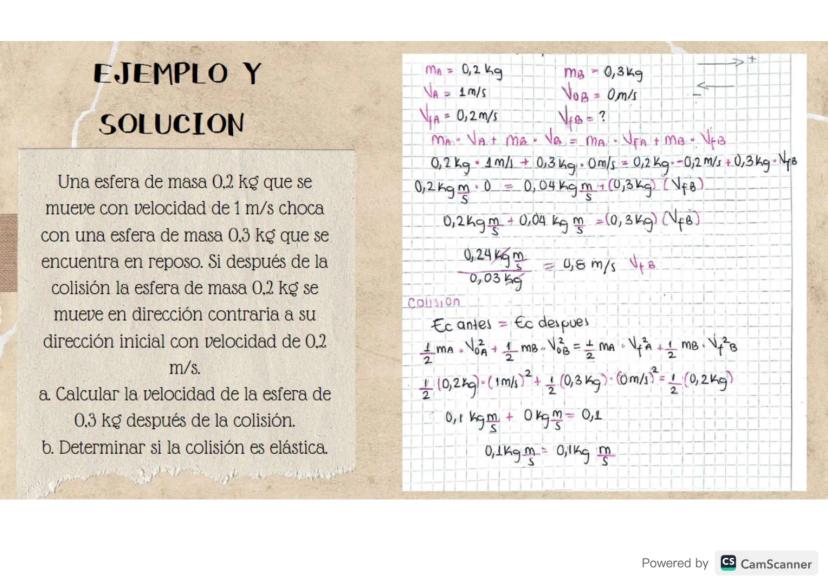 EJEMPLO Y
SOLUCION
Una esfera de masa 0,2 kg que se
mueve con velocidad de 1 m/s choca
con una esfera de masa 0,3 kg que se
encuentra en reposo. Si después de la
colisión la esfera de masa 0,2 kg se
mueve en dirección contraria a su
dirección inicial con velocidad de 0,2
m/s.
a. Calcular la velocidad de la esfera de
0,3 kg después de la colisión.
b. Determinar si la colisión es elástica.
mA = 0,2 kg mB = 0,3kg
VA = 1m/s VOB = 0m/s
VfA = 0,2m/s VfB = ?
mA · VA + mB · VB = mA · VFA + mB · VFB
0,2kg · 1m/s + 0,3kg · 0m/s = 0,2kg · -0,2m/s + 0,3kg · VfB
0,2kg m/s · 0 = 0,04kg m/s + (0,3kg) (VfB)
0,2kg m/s + 0,04 kg m/s = (0,3kg) (VfB)
0,24kg m/s / 0,03 kg = 0,8 m/s VfB
colision
Ec antes = Ec despues
1/2 mA · V0A² + 1/2 mB · V0B² = 1/2 mA · VfA² + 1/2 mB · Vf²B
1/2 (0,2kg) · (1m/s)² + 1/2 (0,3kg) · (0m/s)² = 1/2 (0,2kg)
0,1 kg m/s + 0kg m/s = 0,1
0,1kg m/s = 0,1kg m/s
Powered by CS CamScanner